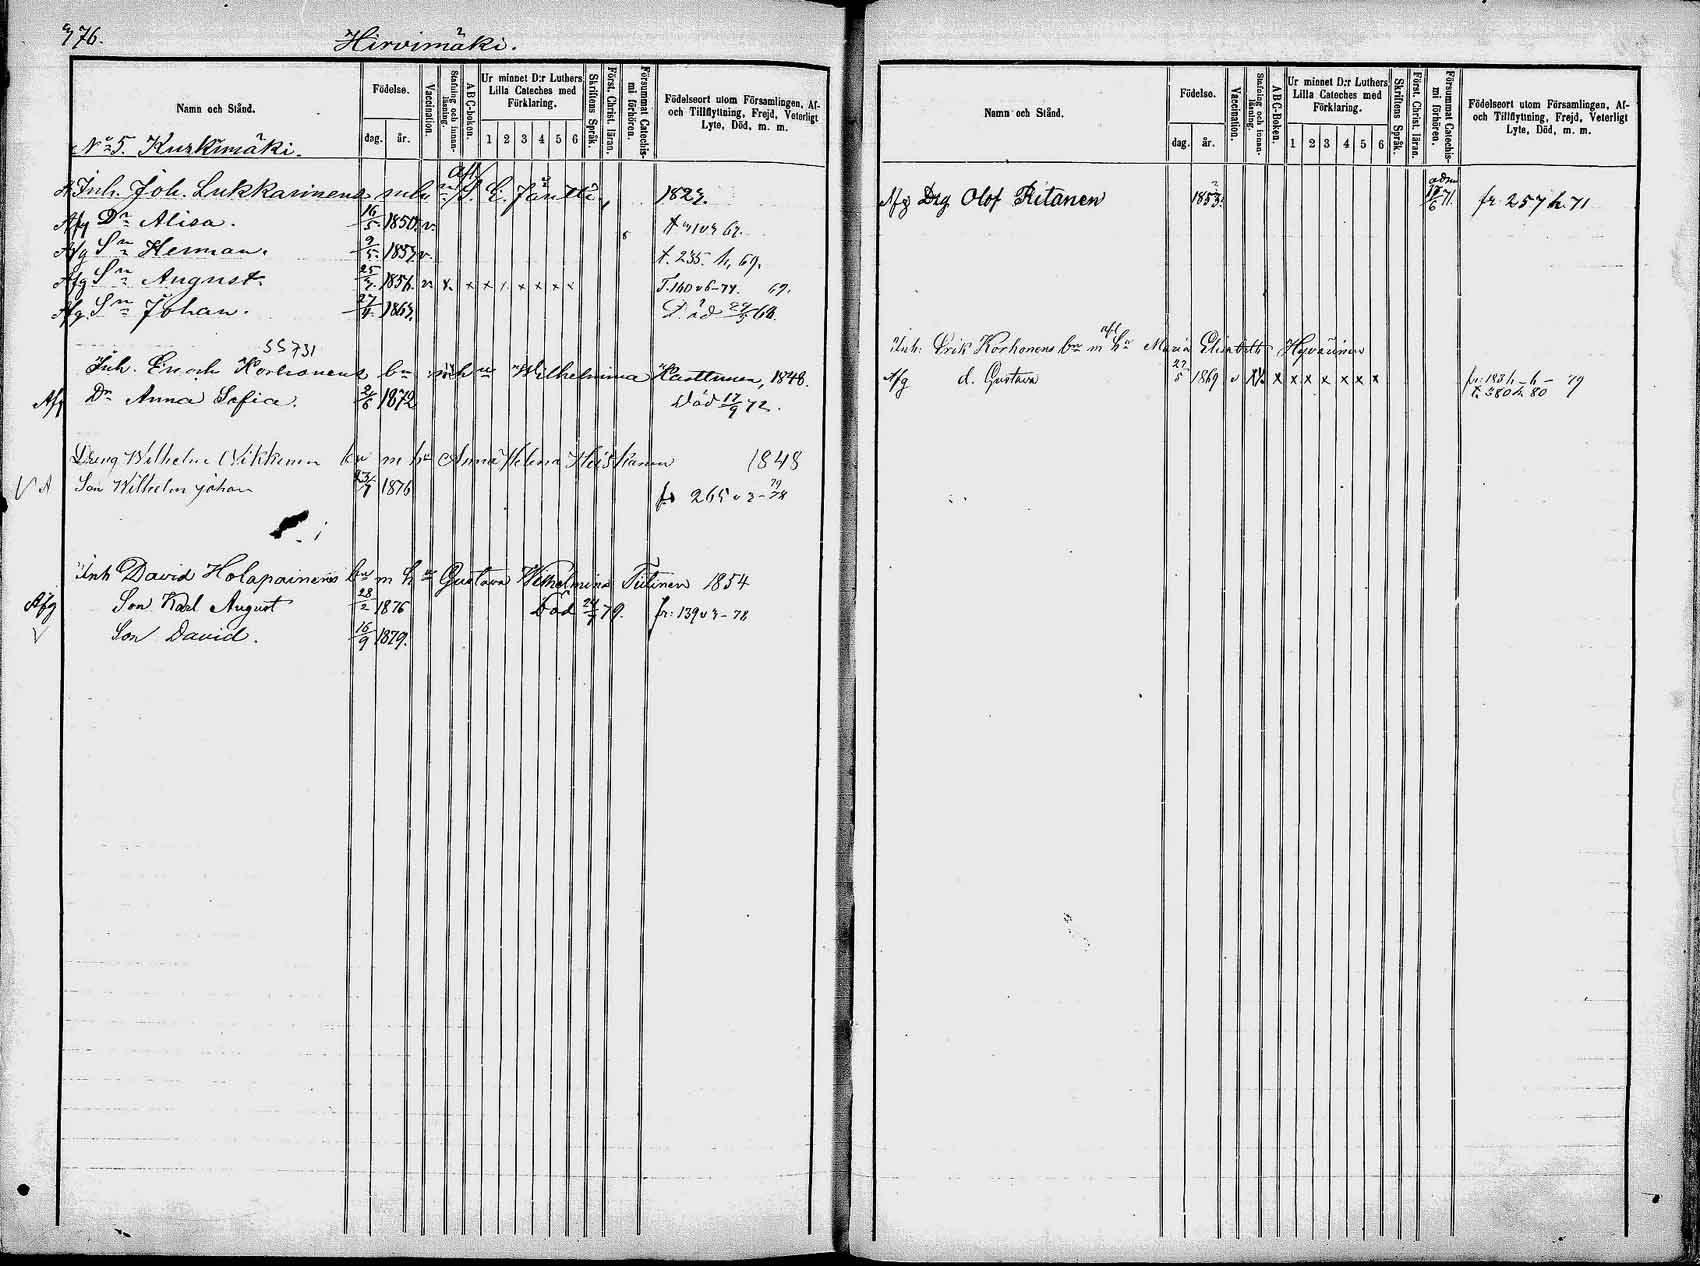 976.
Hirvimäki.
Namn och Stånd.
Födelse.
dag. år.
Vaccination.
Stafning och innan-läsning.
A B C-boken.
Ur minnet D:r Luthers Lilla Cateches med Förklaring.
1 2 3 4 5 6
Skriftens Språk.
Först. Christ. läran.
Försummat Catechis-mi förhören.
Födelseort utom Församlingen, Af- och Tillflyttning, Frejd, Veterligt Lyte, Död, m. m.
No 5. Kurkimäki.
Inh. Joh. Lukkarinens Jäntti, 1827.
Afg Dr Alisa. 16/5 1850. v.
Afg Sn Herman. 9/5 1857 v. t. 235. h, 69.
Afg Sn August. 1856. v x x x x x x x 69.
Afg. Sn Johan. 27/ 186 Död
55731
Inh. Enoch Korhonens bn m hu Wilhelmina Karttunen, 1848.
Afg Dr Anna Sofia. 2/6 1872 Död 17/9 72.
Dreng Wilhelm Wikkunen bn m hu Anna Helena Heiskanen 1848
V A Son Wilhelm Johan 23/7 1876 fr 265 v 3-78
Inh David Holapainens bn m hu Gustava Wilhelmina Tiitinen 1854
Afg Son Karl August 28/2 1876 Död 24/7 79. fr: 139 v 3-78
V Son David. 16/9 1879.
Namn och Stånd.
Födelse.
dag. år.
Vaccination.
Stafning och innan-läsning.
A B C-Boken.
Ur minnet D:r Luthers Lilla Cateches med Förklaring.
1 2 3 4 5 6
Skriftens Språk.
Först. Christ. läran.
Försummat Catechis-mi förhören.
Födelseort utom Församlingen, Af- och Tillflyttning, Frejd, Veterligt Lyte, Död, m. m.
Afg Drg Olof Ritanen 1853. 71. fr. 257 h. 71
Inh: Erik Korhonens bn m afl hu Maria Elisabeth Hyvärinen
Afg d. Gustava 27/5 1869 v x x x x x x x fr: 183 h-h-79
t. 380 h. 80